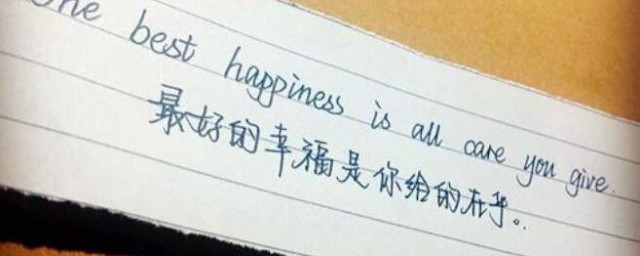 The best happiness is all care you give.
最好的幸福是你给的在乎。